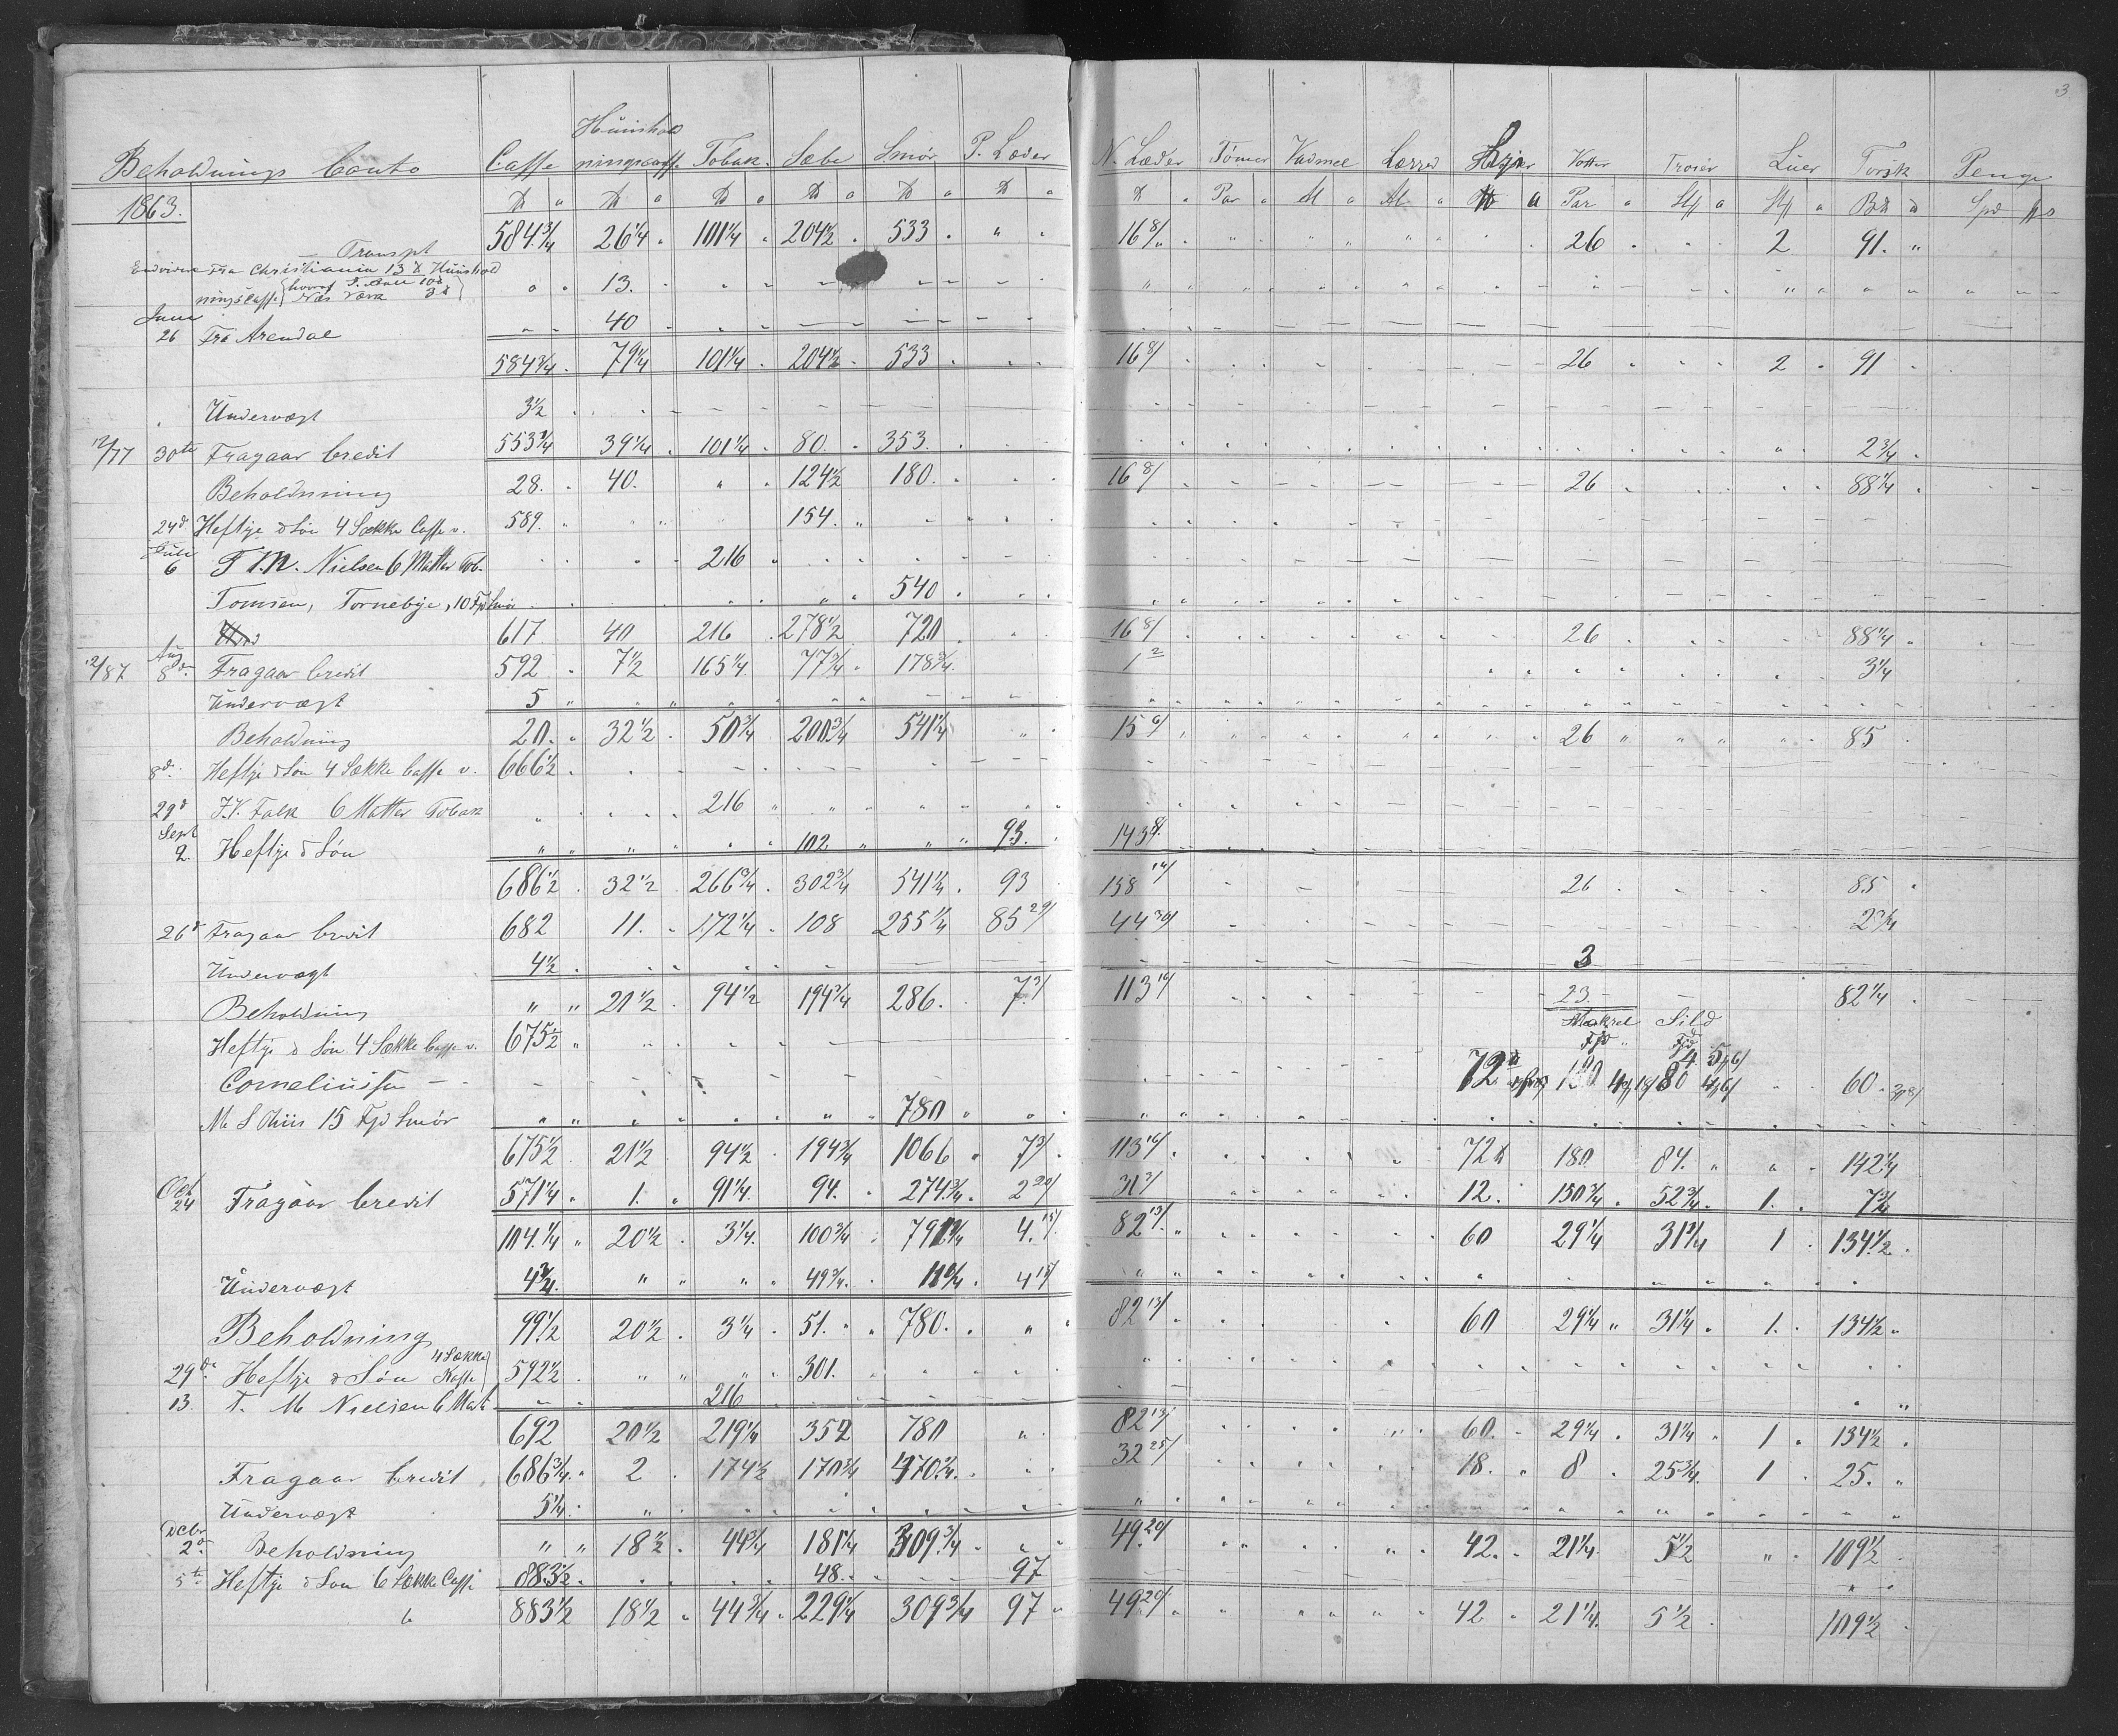 3
Beholdnings Conto Caffe Huushold ningscaffe Tobak. Sæbe Smør P. Læder N. Læder Tømer Vadmel Lærred Votter Troier Luer Torsk Penge
1863. Par Al Al Par Spd
Transpt 584 3/4 26 1/4 101 1/4 204 1/2 533 16 8/ 26 2 91
Fra Christiania 13 ℔ Huushold
ningsCaffe 13.
Juni
26 Fra Arendal 40
584 3/4 79 1/4 101 1/4 204 1/2 533 16 8/ 26 2 91
Undervægt 3 1/2
12/77 30te Fragaar Credit 553 1/4 39 1/4 101 1/4 80 353 2 3/4
Beholdning 28. 40. 124 1/2 180. 16 8/ 26 88 1/4
24d Heftye & Søn 4 Sække Caffe v. 589. 154.
Juli
6 T. M. Nielsen 6 Matter Tob. 216
Tomsen, Tornebye, 10 Fjd Smør 540
617 40 216 278 1/2 720 16 8/ 26 88 1/4
12/87 Aug 8de Fragaar Credit 592 7 1/2 165 1/4 77 3/4 178 3/4 1 2 3 1/4
Undervægt 5
Beholdning 20. 32 1/2 50 3/4 200 3/4 541 1/4 15 6/ 26 85
8d. Heftye & Søn 4 Sække Caffe v. 666 1/2
29d J. V. Falk 6 Matter Tobak 216
Sept
2. Heftye & Søn 102 93. 143 8/
686 1/2 32 1/2 266 3/4 302 3/4 541 1/4 93 158 14/ 26 85
26d Fragaar Credit 682 11. 172 1/4 108 255 1/4 85 29/ 44 30/ 2 3/4
Undervægt 4 1/2 3
Beholdning 21 1/2 94 1/2 194 3/4 286. 7 3/ 113 16/ 23. 82 1/4
Heftye & Søn 4 Sække Caffe v. 675 1/2 Makrel Sild
Corneliussen 72 180 80 60
M S Thiis 15 Fjd Smør 780
675 1/2 21 1/2 94 1/2 194 3/4 1066 7 3/ 113 16/ 72 180 84. 142 1/4
Oct
24 Fragaar Credit 571 1/4 1. 91 1/4 94. 274 3/4 2 20/ 31 3/ 12. 150 3/4 52 3/4 1. 7 3/4
104 1/4 20 1/2 3 1/4 100 3/4 791 1/4 4 15/ 82 13/ 60 29 1/4 31 1/4 1 134 1/2
Undervægt 4 3/4 49 3/4 11 1/4 4 15/
Beholdning 99 1/2 20 1/2 3 1/4 51. 780. 82 13/ 60 29 1/4 31 1/4 1. 134 1/2
29de Heftye & Søn 4 Sække Kaffe 592 1/2 301.
13. T. M Nielsen 6 Mat 216
692 20 1/2 219 1/4 352 780 82 13/ 60. 29 1/4 31 1/4 1 134 1/2
Fragaar Credit 686 3/4 2 174 1/2 170 3/4 470 1/4 32 25/ 18. 8 25 3/4 1 25.
Undervægt 5 1/4
Decbr
2d. Beholdning 18 1/2 44 3/4 181 1/4 309 3/4 49 20/ 42. 21 1/4 5 1/2 109 1/2
5te Heftye & Søn 6 Sække Caffe 883 1/2 48. 97
883 1/2 18 1/2 44 3/4 229 1/4 309 3/4 97 49 20/ 42 21 1/4 5 1/2 109 1/2